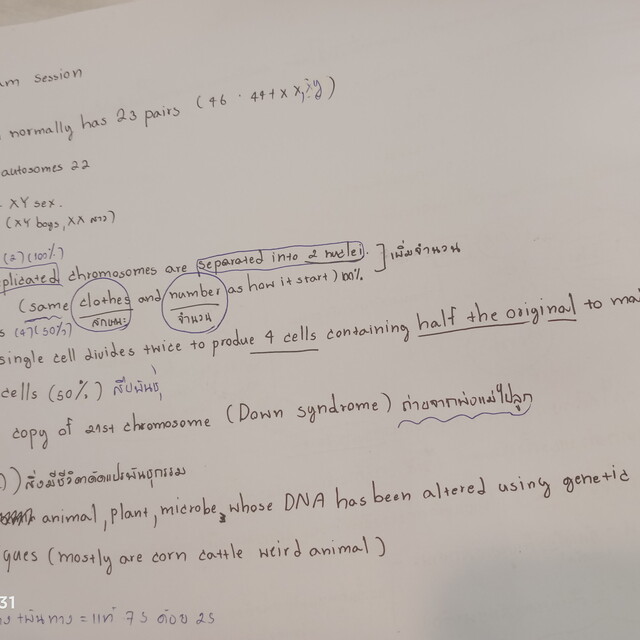 am session
normally has 23 pairs (46 · 44+XX,xy)
autosomes 22
- XY sex.
(XY boys, XX สาว)
(2)(100%)
plicated chromosomes are separated into 2 nuclei. ] เพิ่มจำนวน
(same clothes and number as how it start) 100%
ลักษณะ จำนวน
s (4)(50%)
single cell divides twice to produe 4 cells containing half the original to ma
cells (50%) สืบพันธุ์
copy of 21st chromosome (Down syndrome) ถ่ายจากพ่อแม่ไปลูก
) สิ่งมีชีวิตดัดแปรพันธุกรรม
animal, plant, microbe, whose DNA has been altered using genetic
ques (mostly are corn cattle weird animal)
31